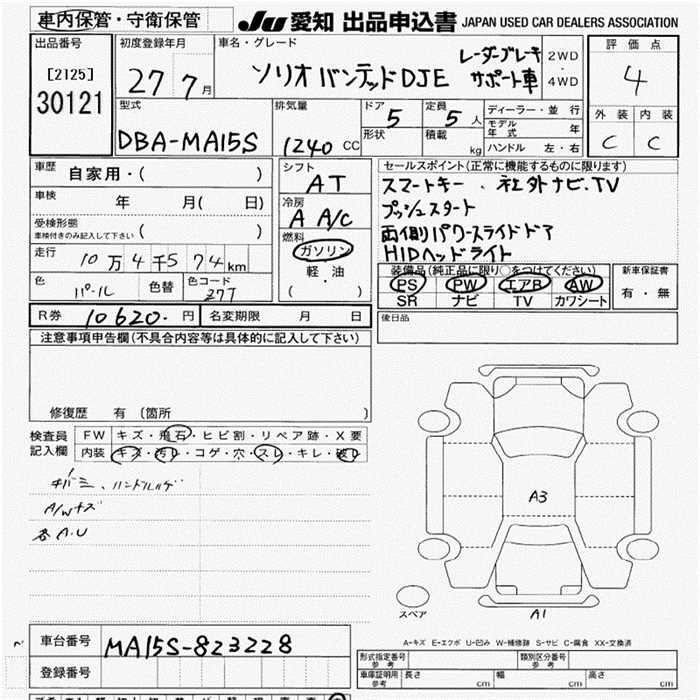 車内保管・守衛保管
JU 愛知 出品申込書 JAPAN USED CAR DEALERS ASSOCIATION
出品番号
[2125]
30121
初度登録年月
27 7月
車名・グレード
ソリオ バンデッド DJE
レーダーブレーキ
サポート車
2WD
・
4WD
評価点
4
外装 内装
C C
型式
DBA-MA15S
排気量
1240 CC
ドア 5
形状
定員 5人
積載 kg
ディーラー・並行
モデル年式 年
ハンドル 左・右
車歴 自家用・( )
車検 年 月( 日)
受検形態
車検付きのみ記入して下さい ( )
走行 10万4千574km
色 パール 色替 色コード Z7T
シフト
AT
冷房
A A/C
燃料
ガソリン
・
軽・油
・
( )
セールスポイント(正常に機能するものに限ります)
スマートキー、社外ナビ.TV
プッシュスタート
両側パワースライドドア
HIDヘッドライト
装備品(純正品に限り○をつけてください)
PS PW エアB AW
SR ナビ TV カワシート
新車保証書
有・無
R券 10620- 円 名変期限 月 日
後日品
注意事項申告欄(不具合内容等は具体的に記入して下さい)
修復歴 有(箇所 )
検査員
記入欄
FW キズ・飛石・ヒビ割・リペア跡・X要
内装 キズ・汚レ・コゲ・穴・スレ・キレ・破レ
A/Wキズ
各A.U
A3
スペア
A1
A-キズ E-エクボ U-凹み W-補修跡 S-サビ C-腐食 XX-交換済
車台番号 MA15S-823228
登録番号
形式指定番号
参考
類別区分番号
参考
車庫証明用
参考
長さ cm 幅 cm 高さ cm